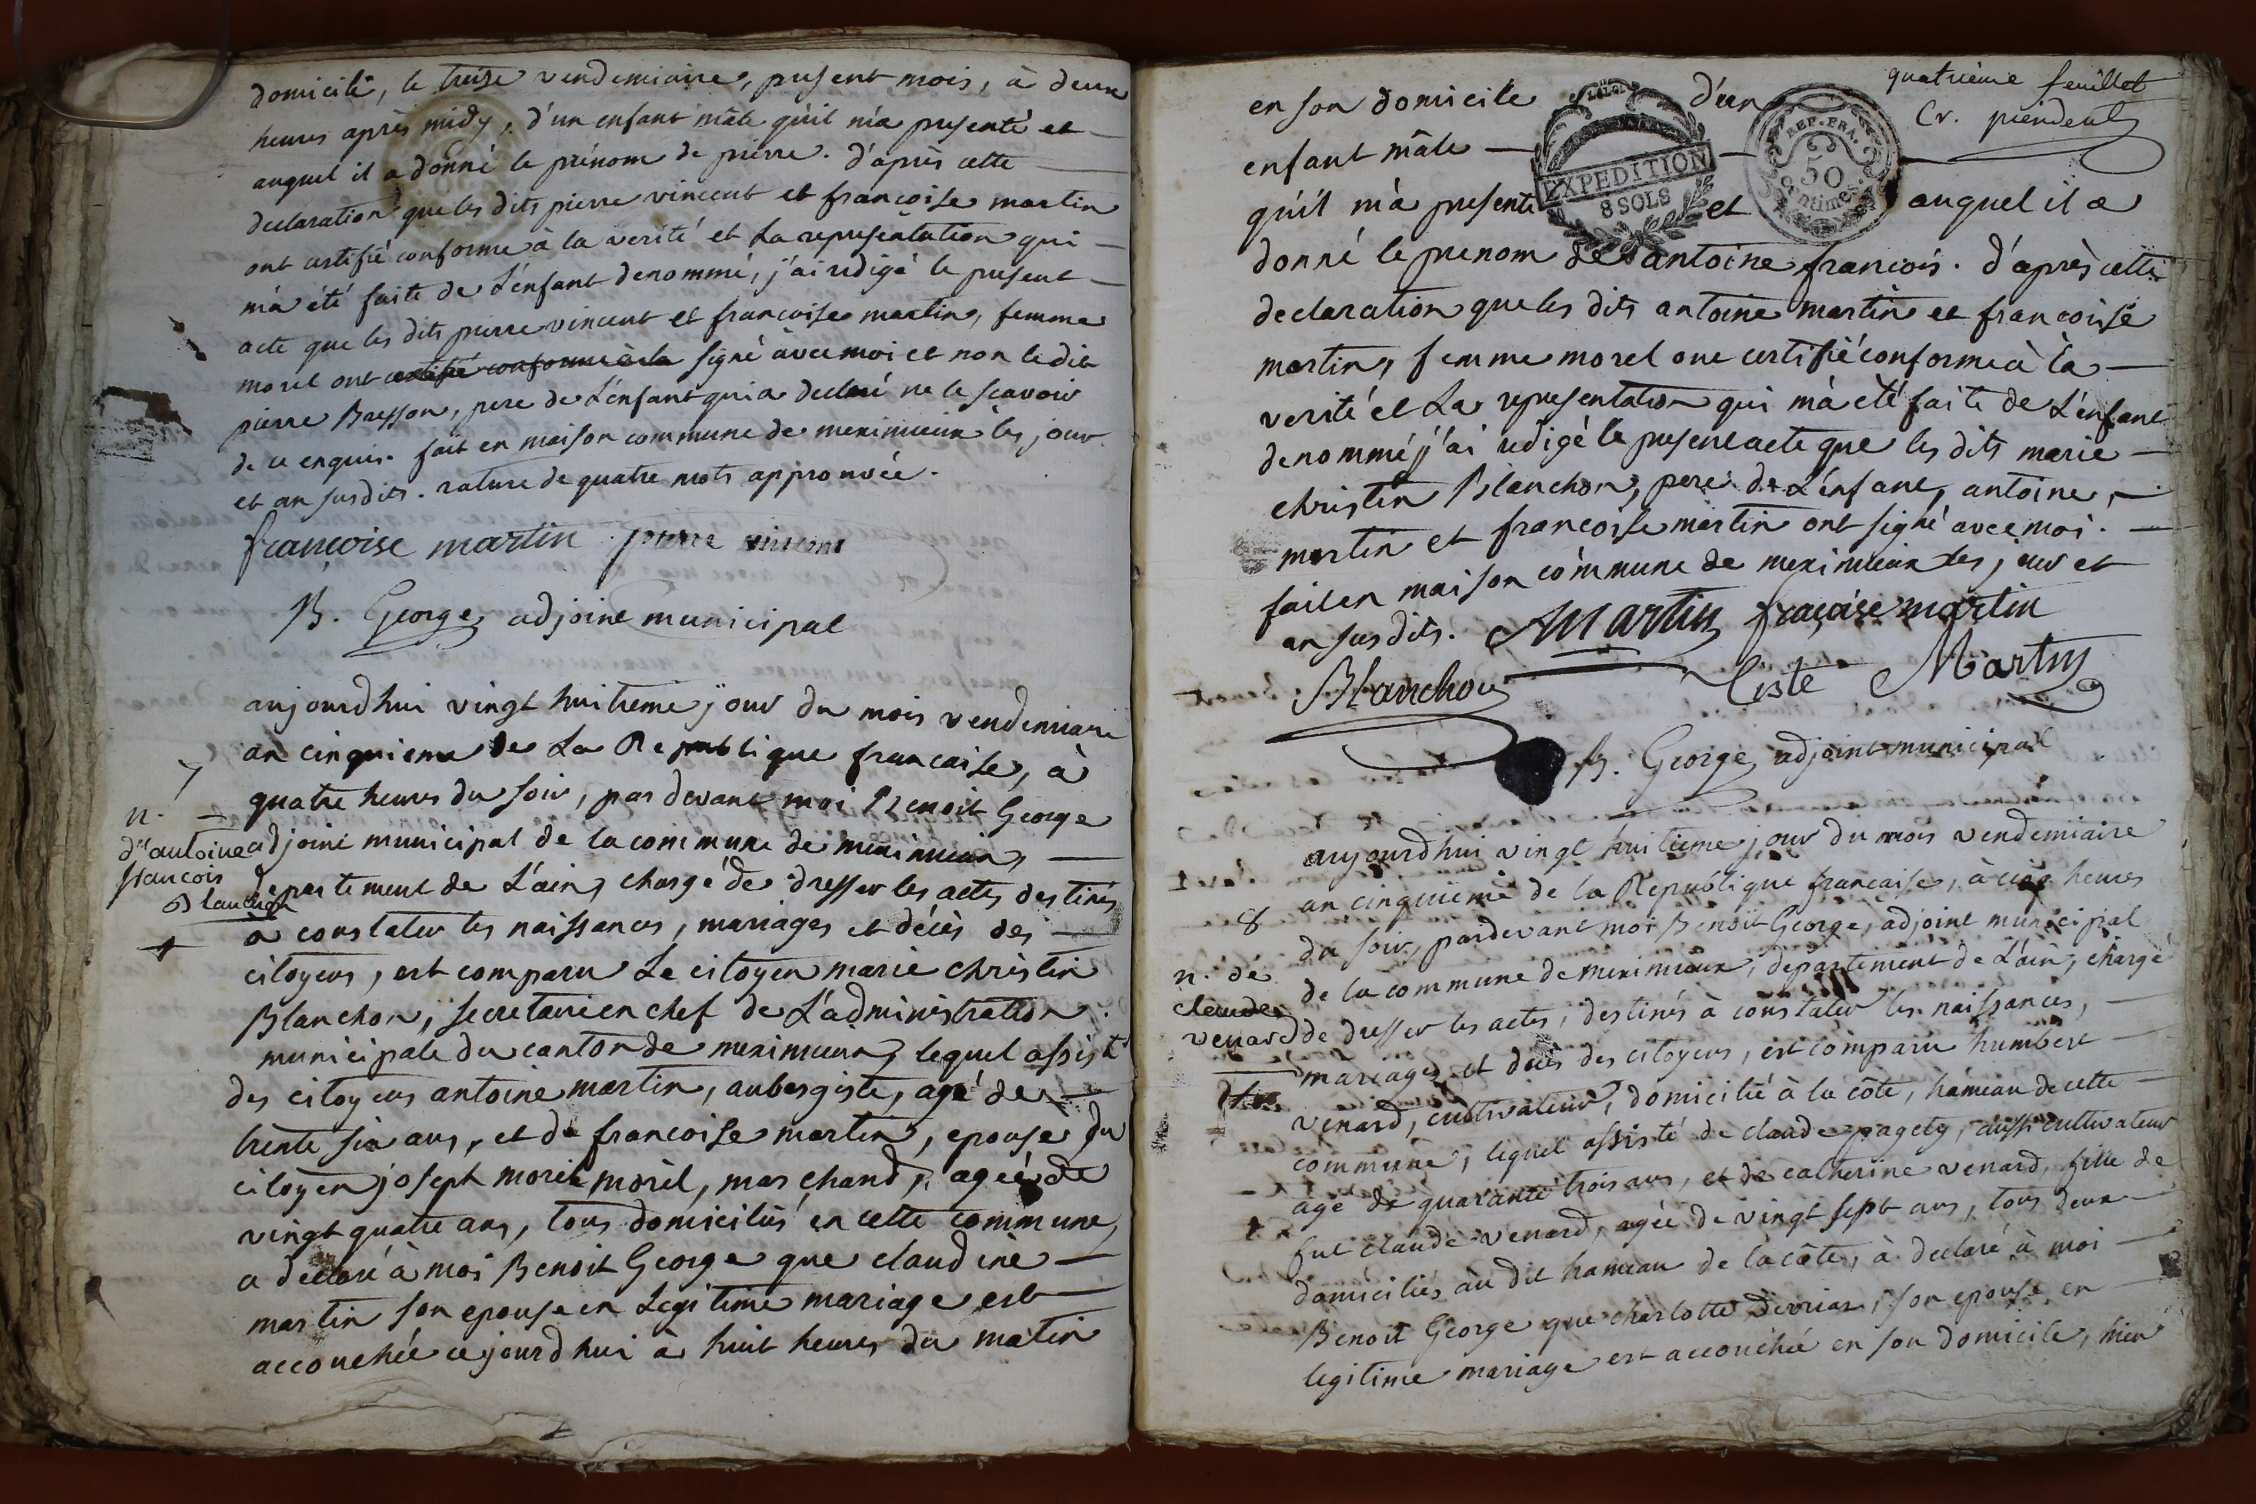 domicilé, le treise vendemiaire, present mois, à deux
heures après midy, d'un enfant mâle qu'il m'a presenté et
auquel il a donné le prénom de pierre. d'après cette
declaration que les dits pierre vincent et françoise martin
ont certifié conforme à la verité et La representation qui
m'a été faite de L'enfant denommé, j'ai redigé le present
acte que les dits pierre vincent et francoise martin, femme
morel ont certifié conforme à la signé avec moi et non le dit
pierre Basson, pere de L'enfant qui a declaré ne le scavoir
de ce enquis. fait en maison commune de meximieux les jour
et an susdits. rature de quatre mots approuvée.
françoise martin pierre vincent
B. George, adjoint municipal
7
n.
d'antoine
francois
Blanchon
aujourdhui vingt huitieme jour du mois vendemiaire
an cinquieme de La Republique francaise, à
quatre heures du soir, par devant moi Benoit George
adjoint municipal de la commune de meximieux,
departement de L'ain, chargé de dresser les actes destinés
à constater les naissances, mariages et décès des
citoyens, est comparu Le citoyen marie christin
Blanchon, secretaire en chef de L'administration
municipale du canton de meximieux, lequel assisté
des citoyens antoine martin, aubergiste, agé de
trente six ans, et de francoise martin, epouse du
citoyen joseph morel morel, marchand, agée de
vingt quatre ans, tous domiciliés en cette commune,
a declaré à moi Benoit George que claudine
martin son epouse en Legitime mariage est
accouchée cejourdhui à huit heures du matin
quatrième feuillet
Cr. president
en son domicile d'un
enfant mâle
EXPEDITION
8 SOLS
REP. FRA.
50
centimes
qu'il m'a presenté et auquel il a
donné le prenom de antoine françois. d'après cette
declaration que les dits antoine martin et francoise
martin, femme morel ont certifié conforme à la
verité et La representation qui m'a été faite de L'enfant
denommé j'ai redigé le present acte que les dits marie
christin Blanchon, pere de L'enfant, antoine
martin et francoise martin ont signé avec moi.
fait en maison commune de meximieux les jour et
an susdits. Martin fraçoise martin
Blanchon Martin
B. George, adjoint municipal
8
n. de
claude
venard
aujourdhui vingt huitieme jour du mois vendemiaire
an cinquieme de la Republique francaise, à cinq heures
du soir, pardevant moi Benoit George, adjoint municipal
de la commune de meximieux, departement de L'ain, chargé
de dresser les actes, destinés à constater les naissances,
mariages et décès des citoyens, est comparu humbert
venard, cultivateur, domicilié à la côte, hameau de cette
commune, lequel assisté de claude pagety, aussi cultivateur
agé de quarante trois ans, et de catherine venard, fille de
fut claude venard, agée de vingt sept ans, tous deux
domiciliés au dit hameau de la côte, à declaré à moi
Benoit George que charlotte son epouse en
legitime mariage est accouchée en son domicile, hier